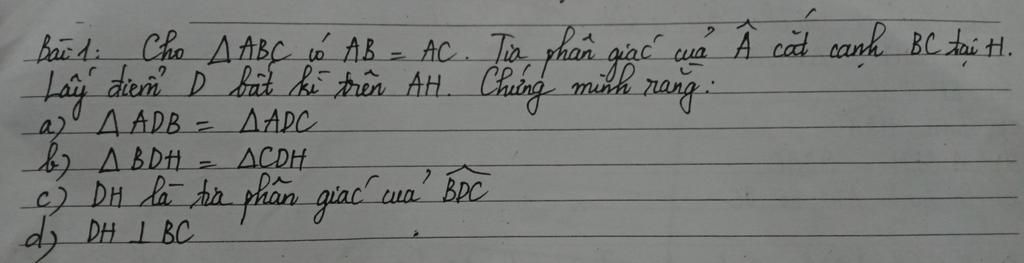 Bài 1: Cho △ABC có AB = AC. Tia phân giác của Â cắt cạnh BC tại H.
Lấy điểm D bất kì trên AH. Chứng minh rằng:
a) △ADB = △ADC
b) △BDH = △CDH
c) DH là tia phân giác của \widehat{BDC}
d) DH ⊥ BC